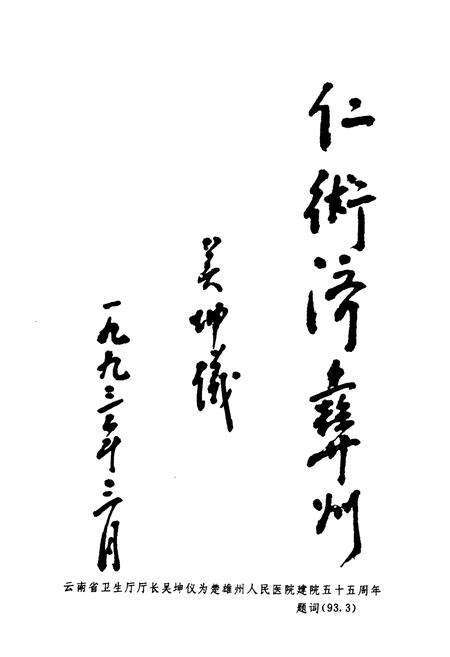 仁術济彝州
吴坤儀
一九九三年三月
云南省卫生厅厅长吴坤仪为楚雄州人民医院建院五十五周年
题词(93.3)